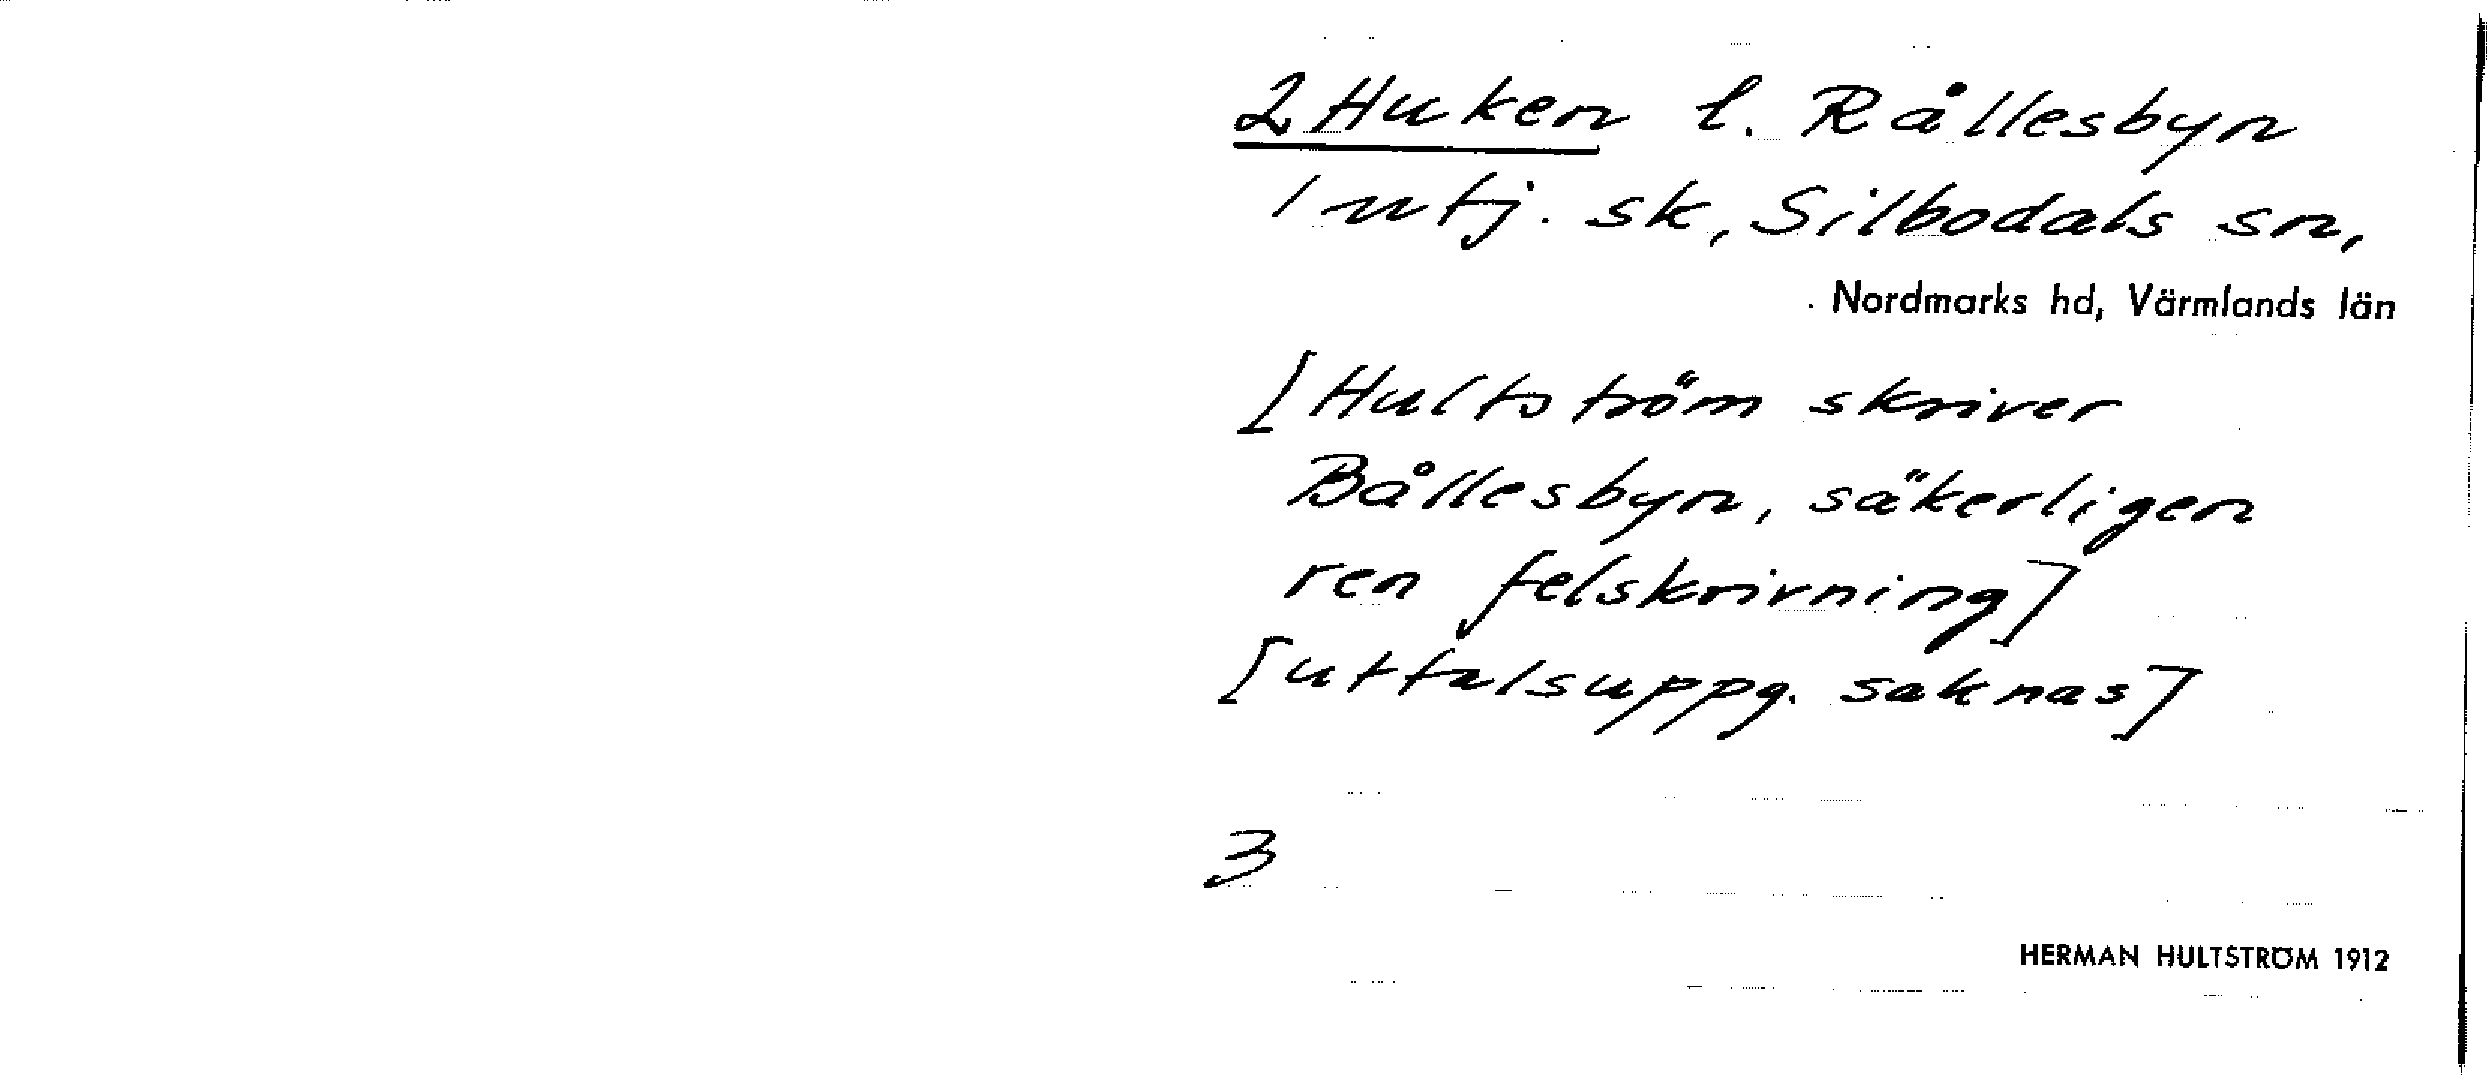 2 Huken l. Rållesbyn
1 utj. sk, Silbodals sn,
Nordmarks hd, Värmlands län
[Hultström skriver
Bållesbyn, säkerligen
ren felskrivning]
[uttalsuppg. saknas]
3
HERMAN HULTSTRÖM 1912